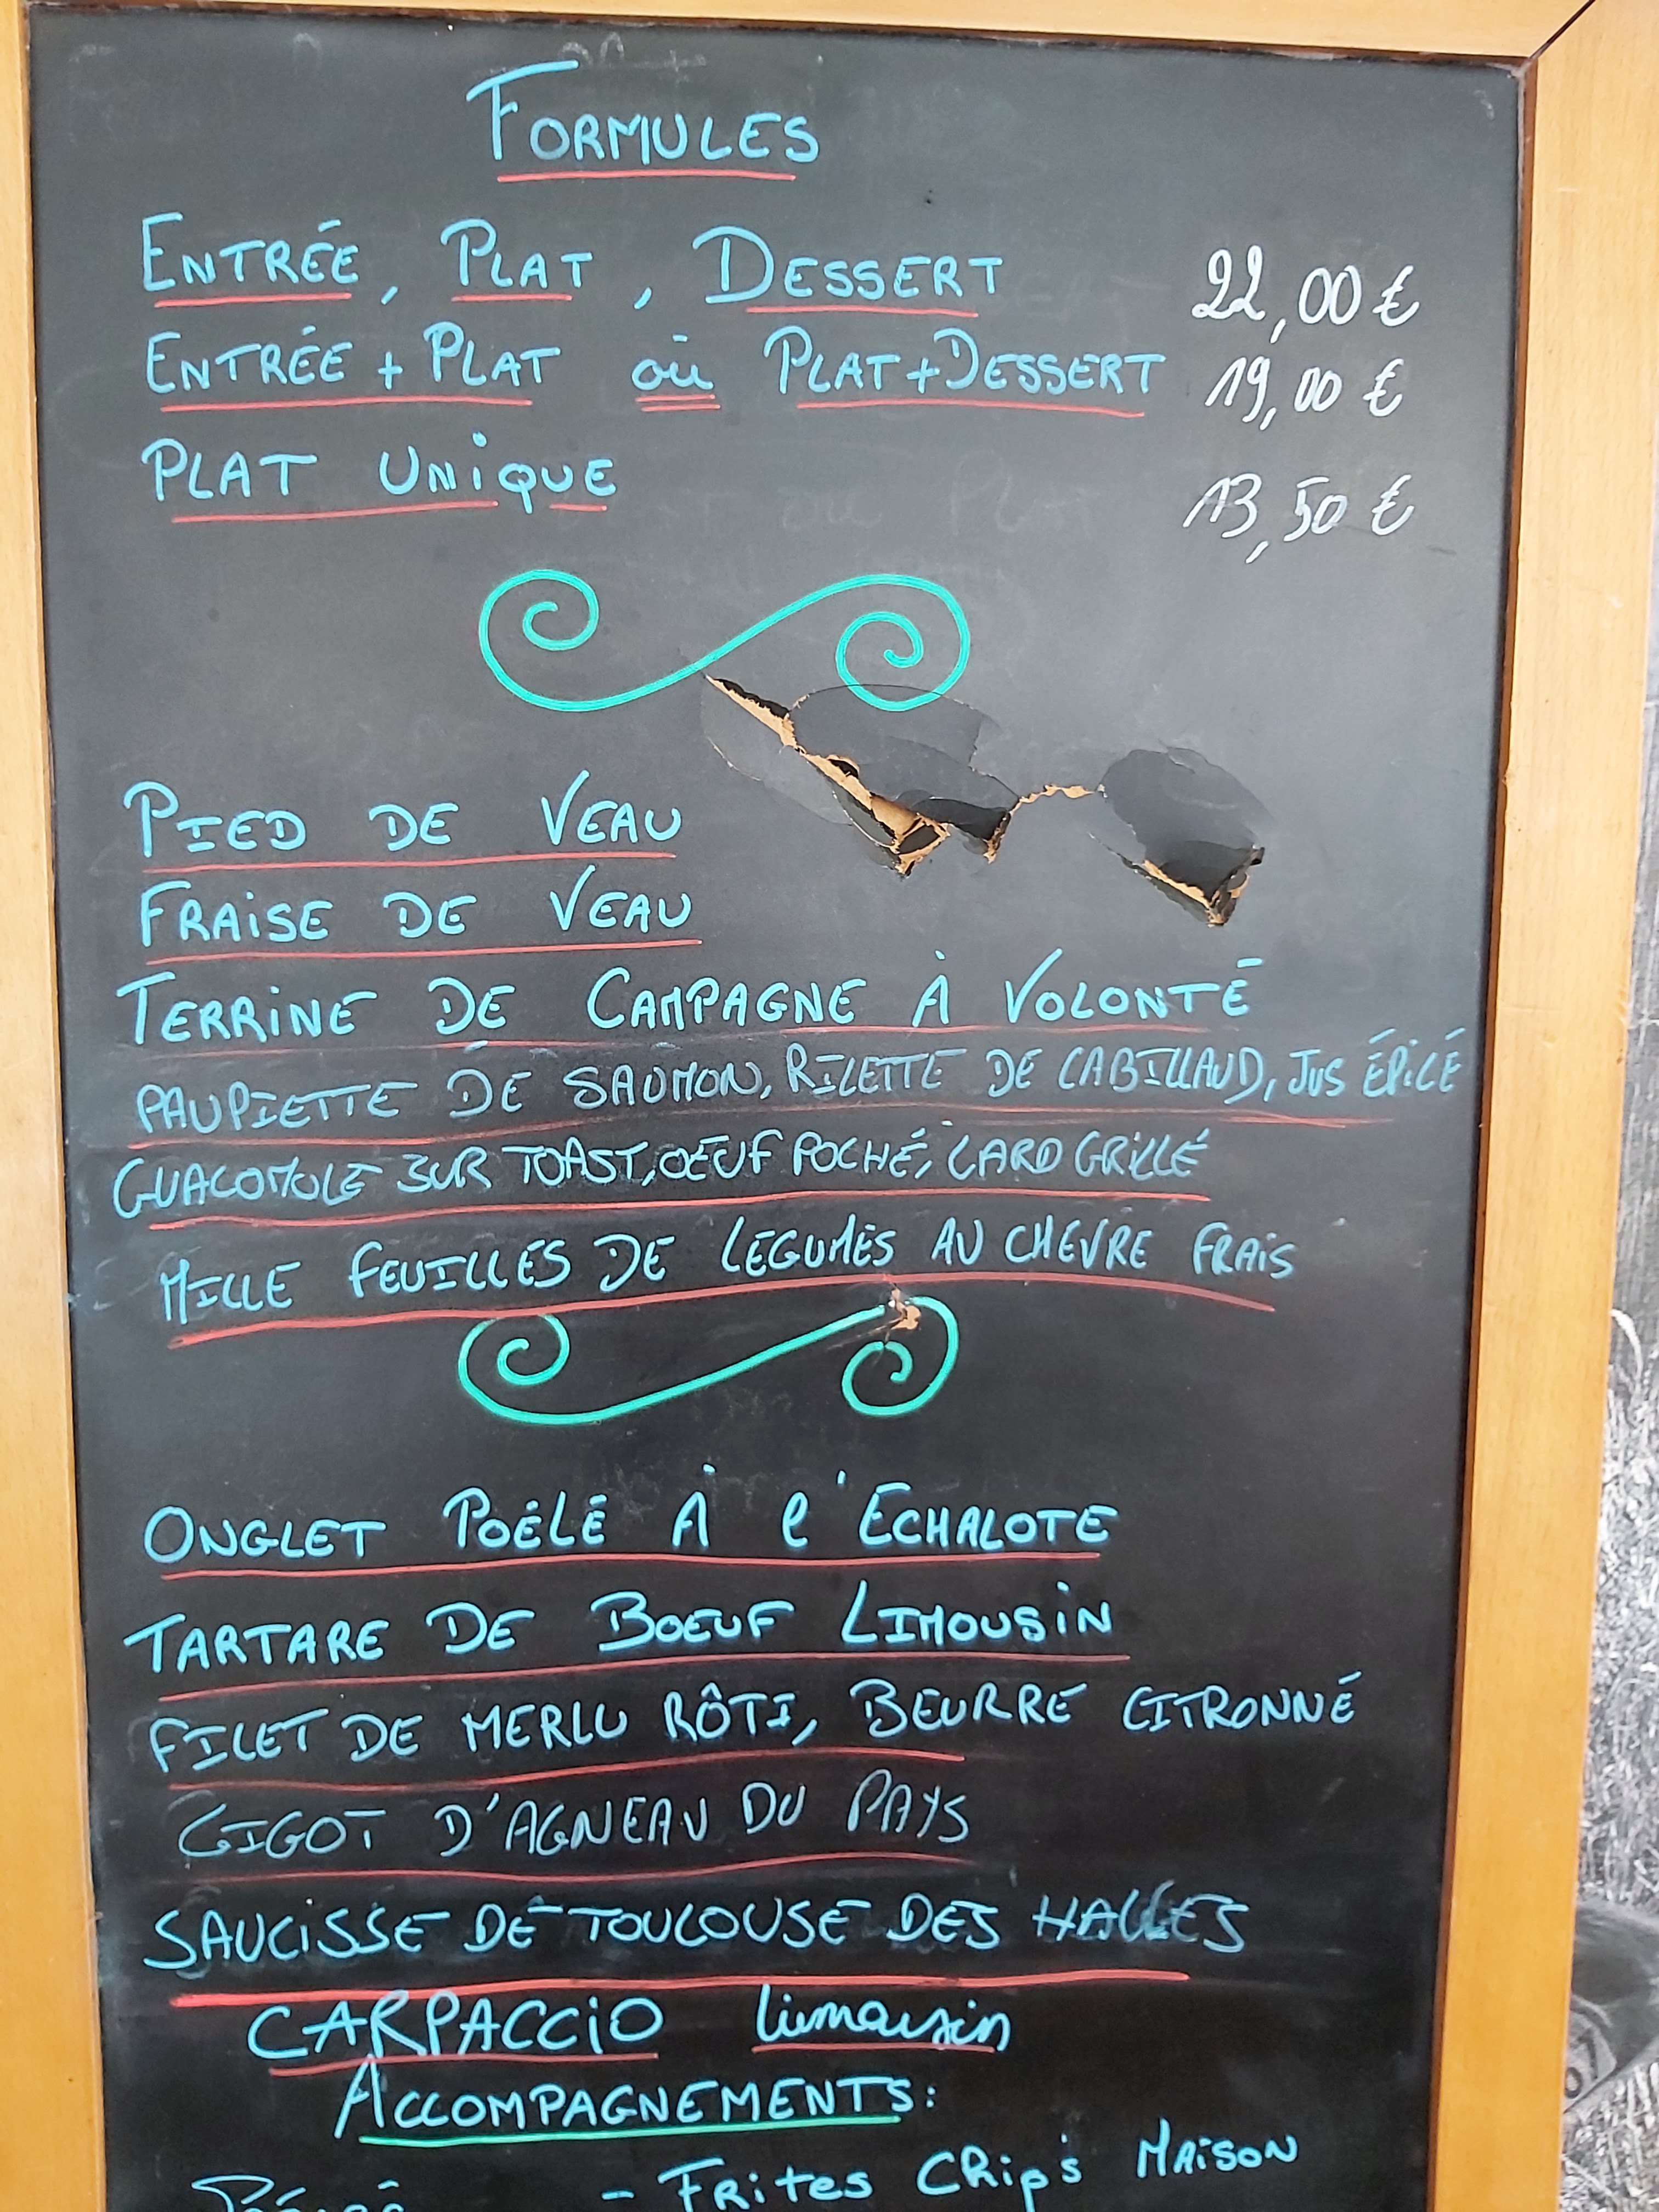 FORMULES
ENTRÉE, PLAT, DESSERT 22,00 €
ENTRÉE + PLAT où PLAT + DESSERT 19,00 €
PLAT UNiQUE 13,50 €
PIED DE VEAU
FRAiSE DE VEAU
TERRiNE DE CAMPAGNE À VOLONTÉ
PAUPIETTE DE SAUMON, RILETTE DE CABILLAUD, JUS ÉPiCÉ
GUACOMOLE SUR TOAST, OEUF POCHÉ, LARD GRiLLÉ
MILLE FEUILLES DE LÉGUMES AU CHEVRE FRAiS
ONGLET POÉLÉ À l'ECHALOTE
TARTARE DE BOEUF LIMOUSiN
FILET DE MERLU RÔTI, BEURRE CITRONNÉ
GIGOT D'AGNEAU DU PAYS
SAUCiSSE DE TOULOUSE DES HALLES
CARPACCiO limousin
ACCOMPAGNEMENTS:
- FRites CRips MAiSON